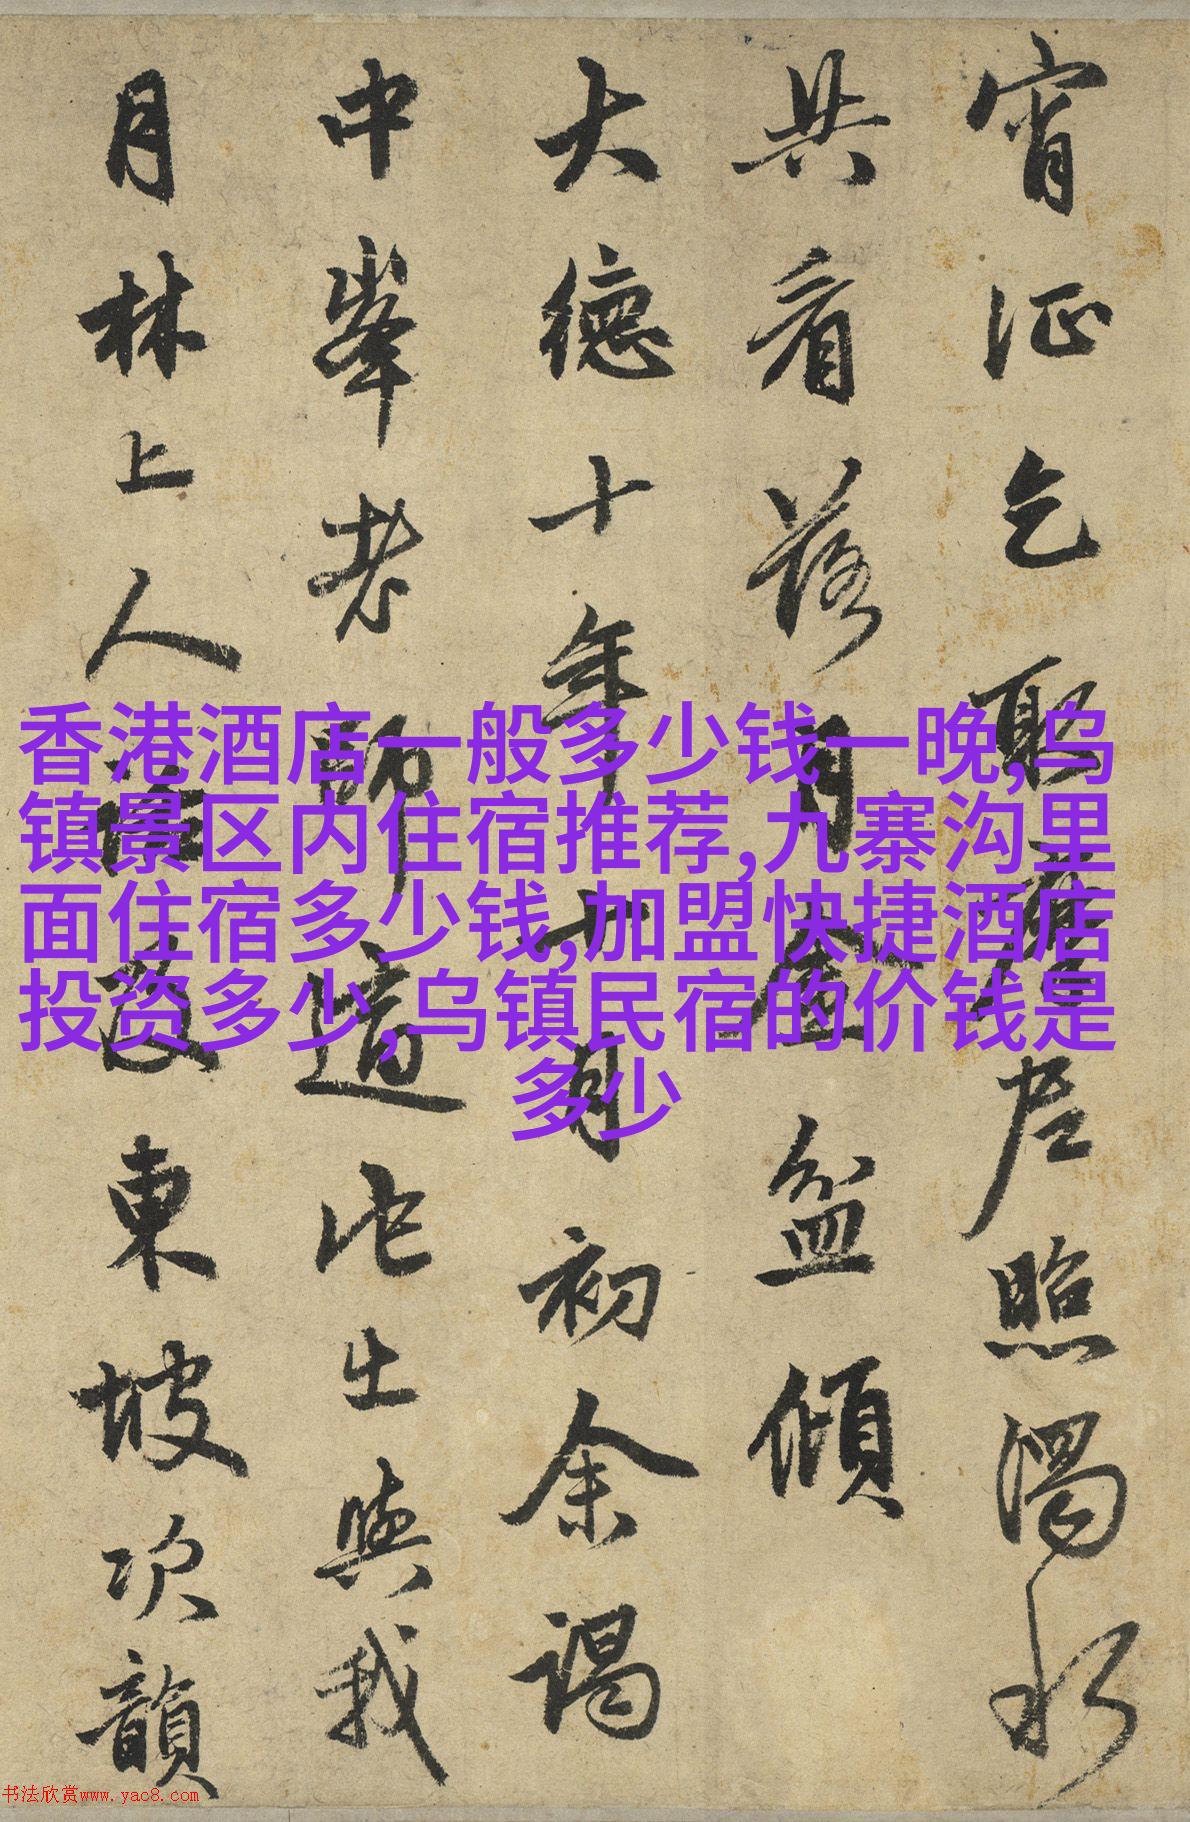 宵征乞取摩尼照濁水
共看落月金盆傾
大德十年十月初余謁
中峯老師道此出與我
月林上人
東坡次韻
香港酒店一般多少钱一晚,乌
镇景区内住宿推荐,九寨沟里
面住宿多少钱,加盟快捷酒店
投资多少,乌镇民宿的价钱是
多少
书法欣赏www.yac8.com